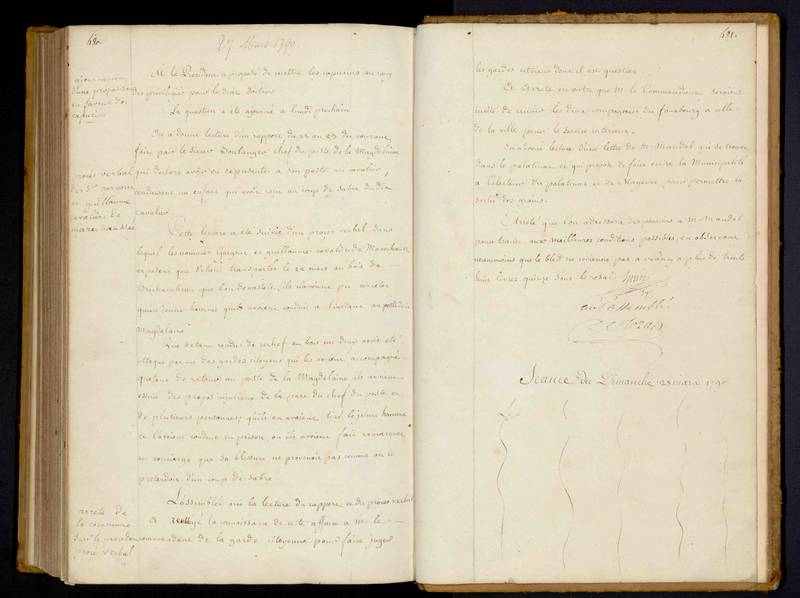 480.
27 Mars 1790.
ajournement
d'une proposition
en faveur des
capucins
M. le President a proposé de mettre les capucins au rang
des privilégiés pour le dixie
La question a été ajournée a lundi prochain
On a donné lecture d'un rapport du 22 au 23 du courant,
fait par le sieur Boulanger chef du poste de la Magdelaine
procès verbal
des Srs
et guillaume
cavaliers de
marechaussée
qui declare avoir vu représenter a son poste un cavalier,
conduisant un enfant qui avoit reçu un coup de sabre du dit
cavalier
Cette lecture a été suivie d'un procès verbal dans
lequel les nommés et guillaume cavaliers de Marechaussée
exposent que s'étant transportés le 22 mars au bois de
que l'on devastoit, ils n'avoient pu arreter
qu'un jeune homme qu'ils avoient conduit a l'instant au poste de la
Magdelaine
Que s'étant rendus de rechef au bois un d'eux avoit été
attaqué par un des gardes citoyens qui les avoient accompagné
qu'etant de retour au poste de la Magdelaine ils avoient
essuié des propos injurieux de la part du chef du poste et
de plusieurs personnes; qu'ils en avoient tiré le jeune homme
et l'avoient conduit en prison, où ils avoient fait remarquer
au concierge que sa blessure ne provenoit pas comme on le
pretendoit d'un coup de sabre
arrété de
la commune
sur le precedent
procès verbal
L'assemblée ouï la lecture du rapport et du procès verbal
a renvoyé la connoissance de cette affaire a M. le
commandant de la garde citoyenne pour faire juger
481.
les gardes citoiens dont il est question.
Et arreté en outre que M. le Commandant seroit
invité de reunir les deux compagnies du faubourg a celle
de la ville pour le service interieur.
On a donné lecture d'une lettre de M. Mandel qui se trouve
dans le palatinat et qui propose de faire ecrire la Municipalité
a l'electeur du palatinat et de Mayence pour permettre la
sortie des grains.
Arreté que l'on adressera des pouvoirs a M. Mandel
pour traiter aux meilleures conditions possibles, en observant
neanmoins que le bled ne revienne pas a a plus de trente
huit livres quinze sous le resal.
Seance du Dimanche 28 mars 1790